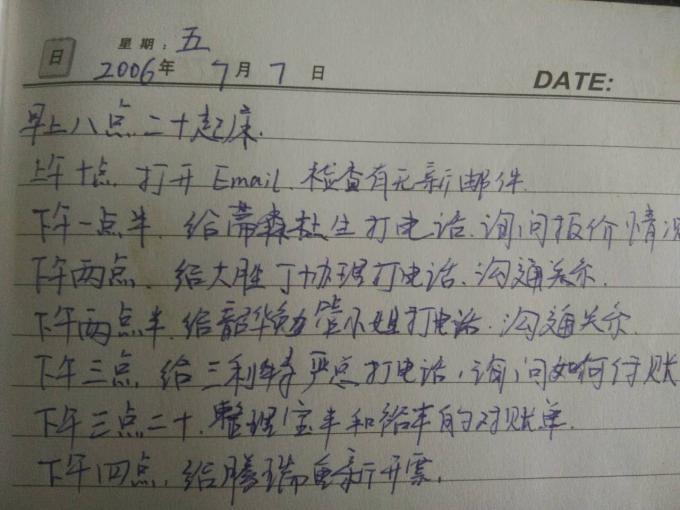 日 星期：五
2006年 7月7日 DATE:
早上八点二十起床.
上午十点 打开Email.检查有无新邮件.
下午一点半.给蒂森杜生打电话.询问报价情况
下午两点.给大胜丁协理打电话.沟通关系.
下午两点半.给韶华 管小姐打电话.沟通关系.
下午三点 给三利特严点打电话,询问如何付账
下午三点二十.整理宝丰和裕丰的对账单.
下午四点.给腾瑞重新开票.